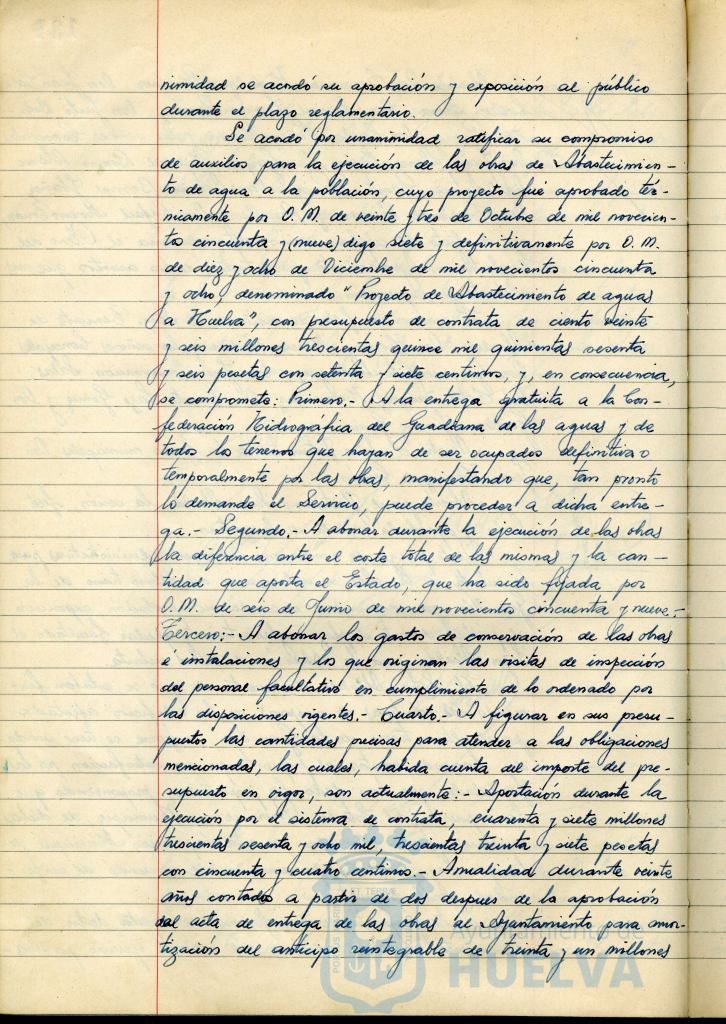 nimidad se acordó su aprobación y exposición al público
durante el plazo reglamentario.
Se acordó por unanimidad ratificar su compromiso
de auxilios para la ejecución de las obras de Abastecimien-
to de agua a la población, cuyo proyecto fué aprobado téc-
nicamente por O. M. de veinte y tres de Octubre de mil novecien-
tos cincuenta y (nueve) digo siete y definitivamente por O. M.
de diez y ocho de Diciembre de mil novecientos cincuenta
y ocho, denominado "Proyecto de Abastecimiento de aguas
a Huelva", con presupuesto de contrata de ciento veinte
y seis millones trescientas quince mil quinientas sesenta
y seis pesetas con setenta y siete centimos, y, en consecuencia,
se compromete: Primero.- A la entrega gratuita a la Con-
federación Hidrográfica del Guadiana de las aguas y de
todos los terrenos que hayan de ser ocupados definitiva o
temporalmente por las obras, manifestando que, tan pronto
lo demande el Servicio, puede proceder a dicha entre-
ga.- Segundo.- A abonar durante la ejecución de las obras
la diferencia entre el coste total de las mismas y la can-
tidad que aporta el Estado, que ha sido fijada por
O. M. de seis de Junio de mil novecientos cincuenta y nueve.-
Tercero:- A abonar los gastos de conservación de las obras
é instalaciones y los que originan las visitas de inspección
del personal facultativo en cumplimiento de lo ordenado por
las disposiciones vigentes.- Cuarto.- A figurar en sus presu-
puestos las cantidades precisas para atender a las obligaciones
mencionadas, las cuales, habida cuenta del importe del pre-
supuesto en vigor, son actualmente:- Aportación durante la
ejecución por el sistema de contrata, cuarenta y siete millones
trescientas sesenta y ocho mil, trescientas treinta y siete pesetas
con cincuenta y cuatro centimos.- Anualidad durante veinte
años contados a partir de dos despues de la aprobación
del acta de entrega de las obras al Ayuntamiento para amor-
tización del anticipo reintegrable de treinta y un millones
HUELVA